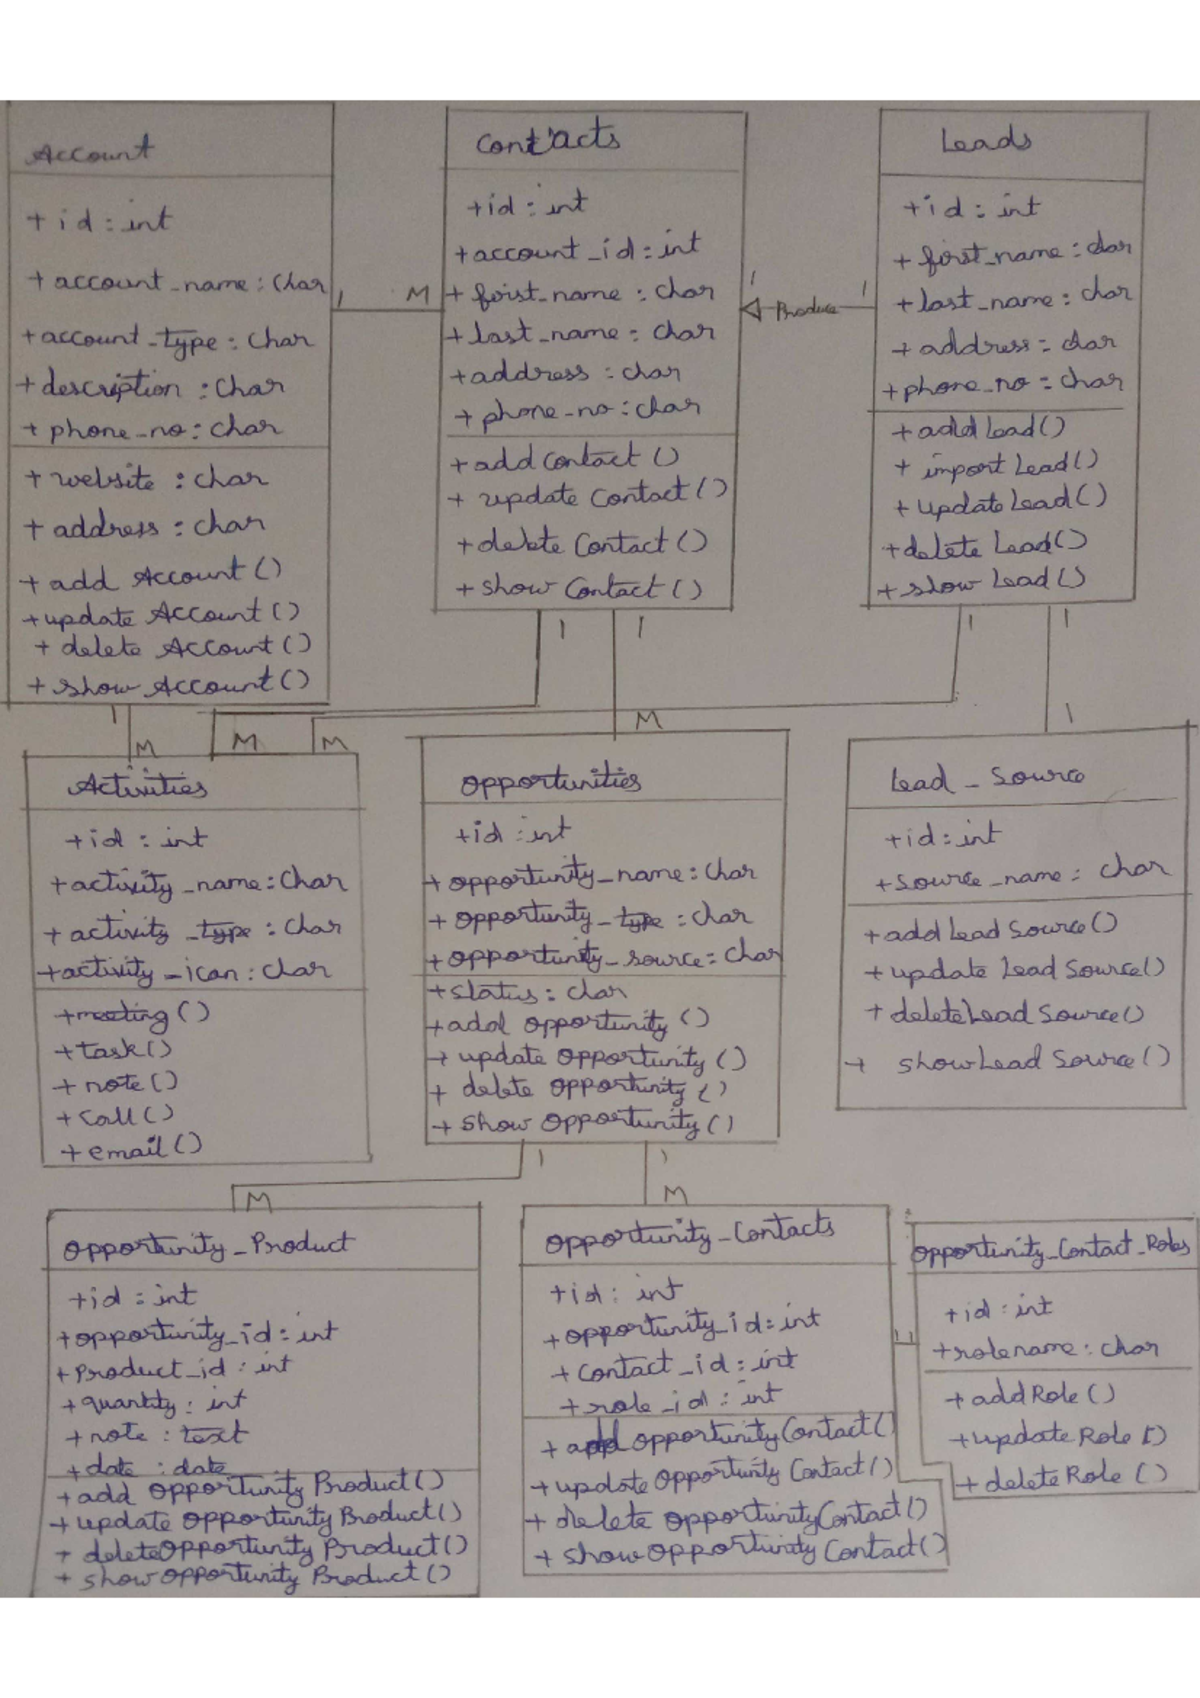 Account
+ id : int
+ account_name : Char
+ account_type : Char
+ description : Char
+ phone_no : Char
+ website : Char
+ address : Char
+ add Account ()
+ update Account ()
+ delete Account ()
+ show Account ()
1
M
Contacts
+ id : int
+ account_id : int
+ foist_name : Char
+ last_name : Char
+ address : Char
+ phone_no : Char
+ add Contact ()
+ update Contact ()
+ delete Contact ()
+ show Contact ()
1
Produce
1
Leads
+ id : int
+ first_name : char
+ last_name : char
+ address : char
+ phone_no : char
+ add Lead ()
+ import Lead ()
+ update Lead ()
+ delete Lead ()
+ show Lead ()
1
1
1
1
1
M
M
M
M
1
Activities
+ id : int
+ activity_name : Char
+ activity_type : Char
+ activity_icon : Char
+ meeting ()
+ task ()
+ note ()
+ Call ()
+ email ()
Opportunities
+ id : int
+ opportunity_name : Char
+ opportunity_type : Char
+ opportunity_source : Char
+ status : char
+ add opportunity ()
+ update opportunity ()
+ delete opportunity ()
+ show opportunity ()
Lead_Source
+ id : int
+ Source_name : Char
+ add Lead Source ()
+ update Lead Source ()
+ delete Lead Source ()
+ show Lead Source ()
1
1
M
M
Opportunity_Product
+ id : int
+ opportunity_id : int
+ Product_id : int
+ quantity : int
+ note : text
+ date : date
+ add opportunity Product ()
+ update opportunity Product ()
+ delete Opportunity Product ()
+ show opportunity Product ()
Opportunity_Contacts
+ id : int
+ opportunity_id : int
+ Contact_id : int
+ role_id : int
+ add opportunity Contact ()
+ update opportunity Contact ()
+ delete opportunity Contact ()
+ show opportunity Contact ()
1 1
Opportunity_Contact_Roles
+ id : int
+ rolename : char
+ add Role ()
+ update Role ()
+ delete Role ()